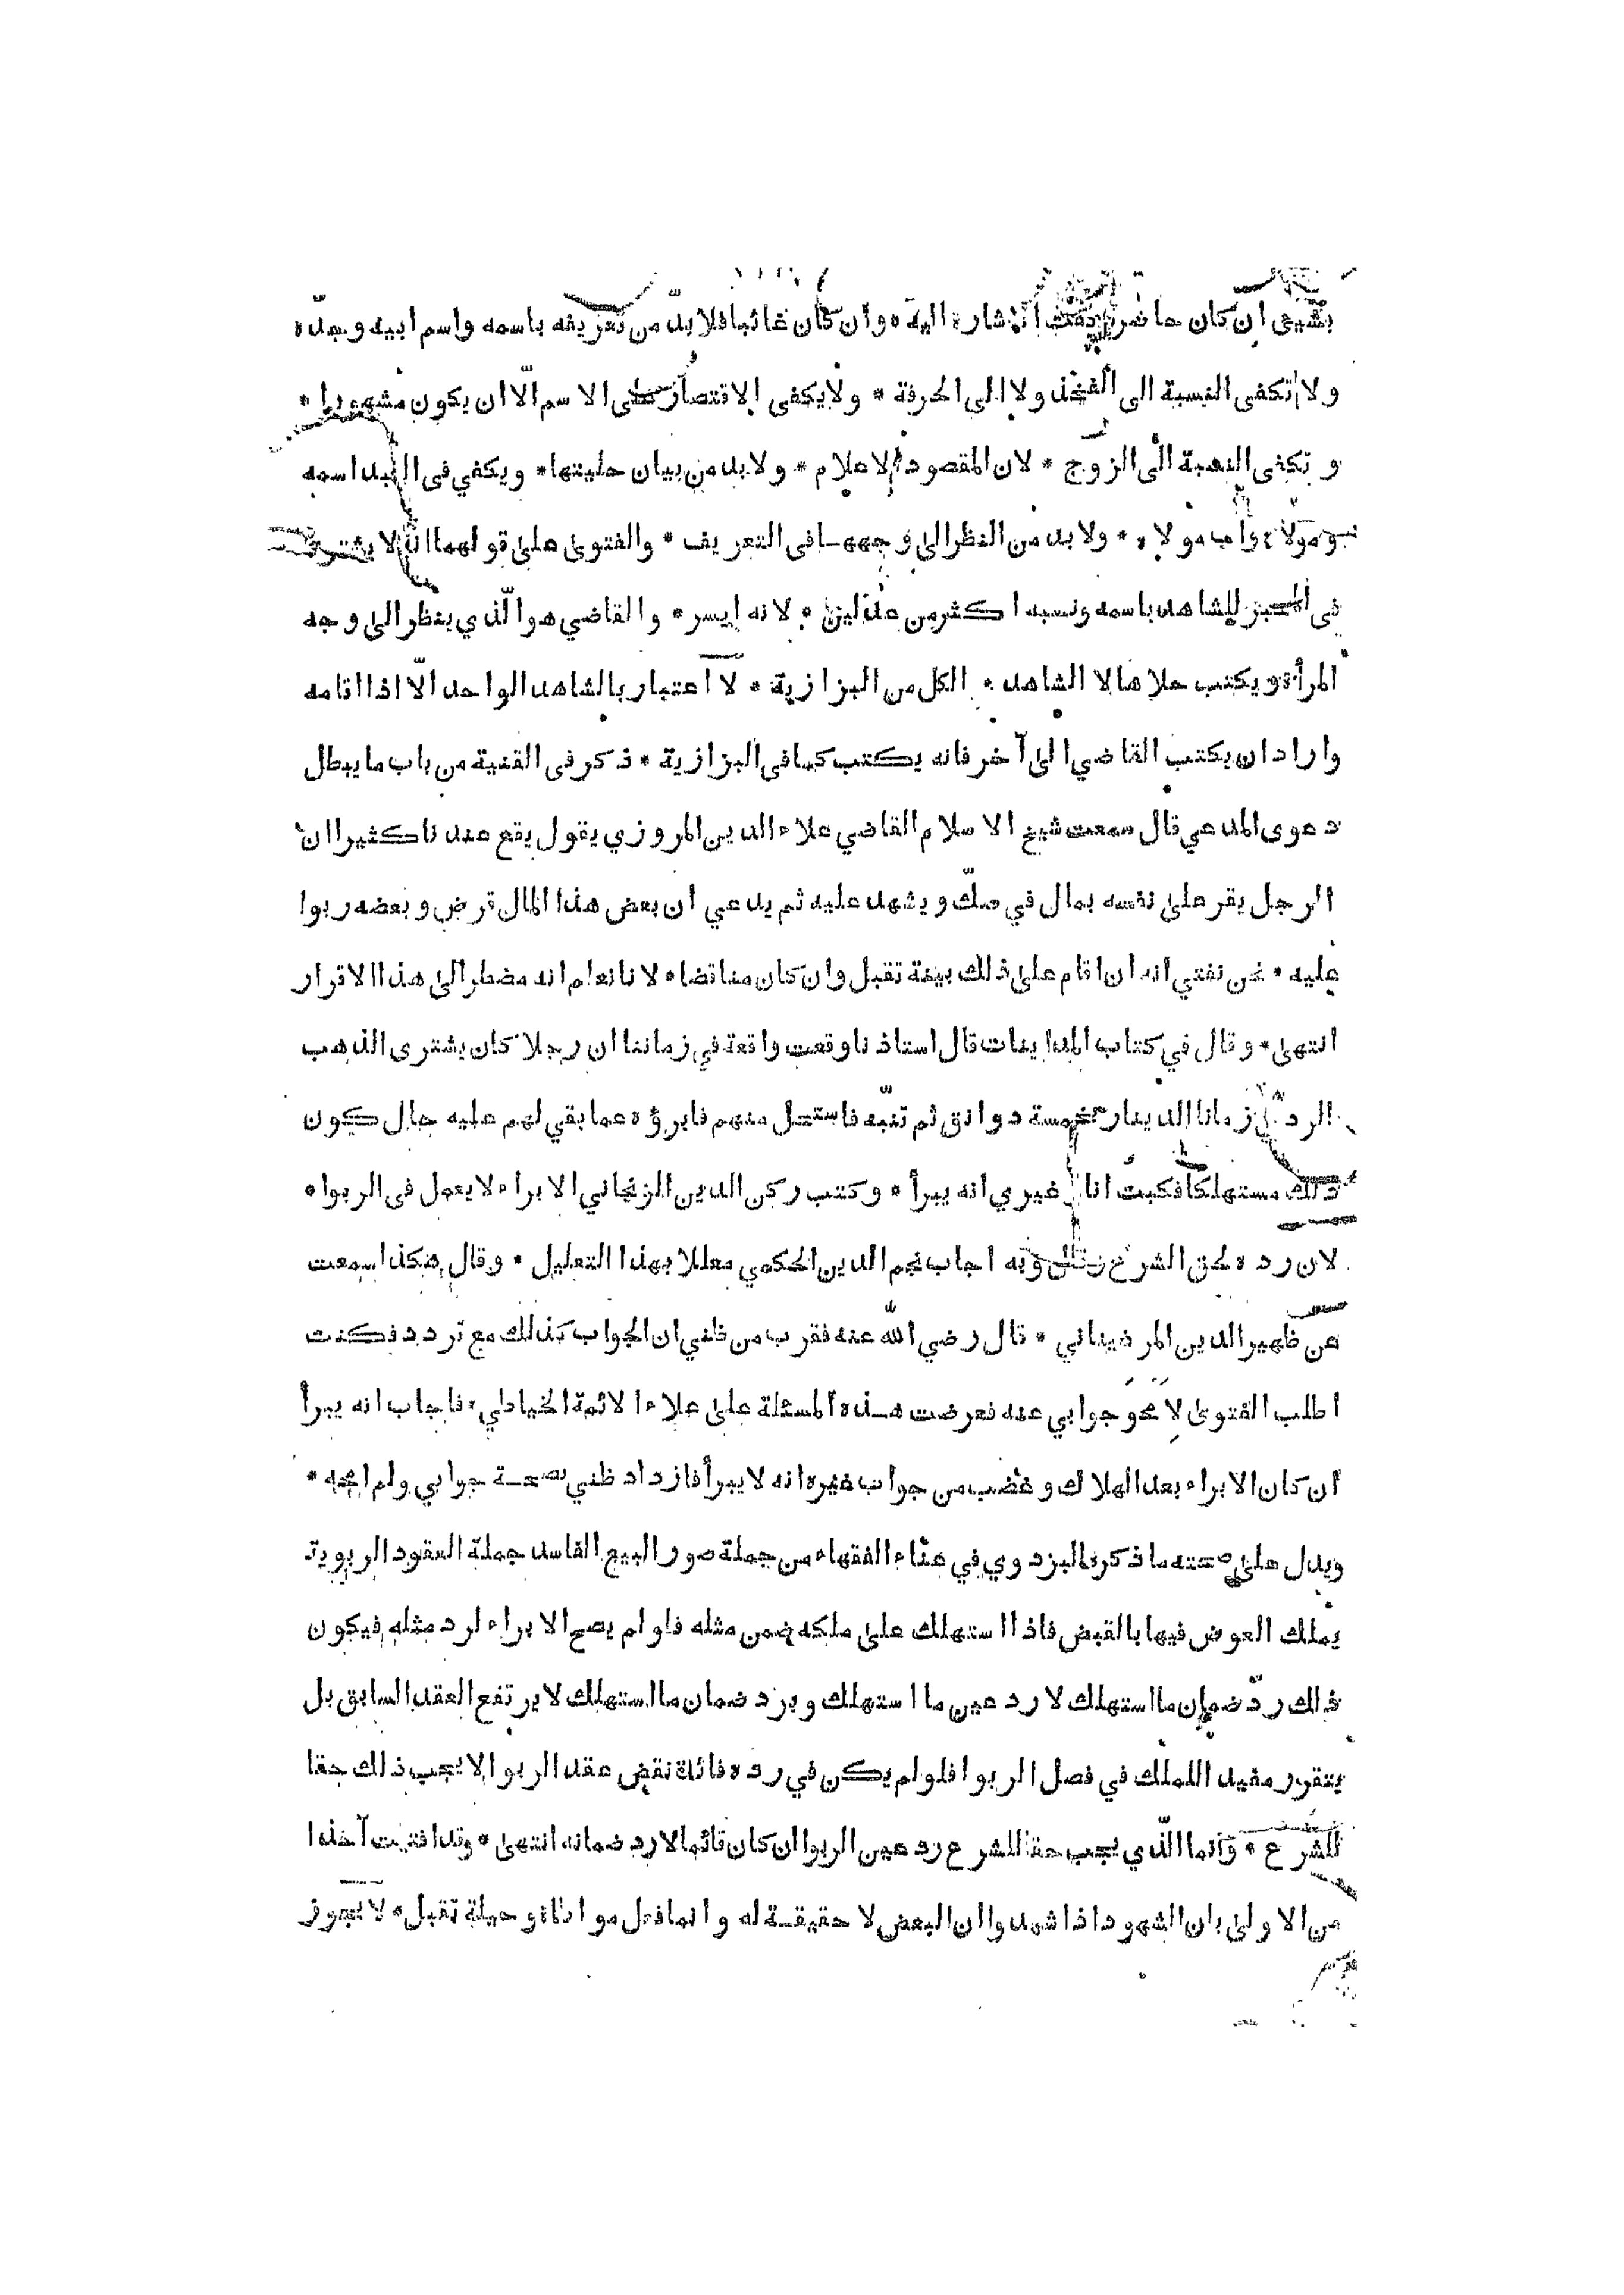 بشيئ ان كان حاضرا كفت الاشارة اليه * وان كان غائبا فلا بدّ من تعريفه باسمه واسم ابيه وجدّه
ولا تكفى النسبة الى الفخذ ولا الى الحرفة * ولا يكفى الاقتصار على الاسم الّا ان يكون مشهورا *
و تكفى النسبة الى الزوج * لان المقصود الاعلام * ولا بد من بيان حليتها * ويكفي فى العبد اسمه
ومولاه واب مولاه * ولا بد من النظر الى وجهها فى التعريف * والفتوى على قولهما انه لا يشترط
فى المخبر للشاهد باسمه ونسبه اكثر من عدلين * لانه ايسر * والقاضي هو الّذي ينظر الى وجه
المرأة ويكتب حلاها لا الشاهد * الكل من البزازية * لا اعتبار بالشاهد الواحد الّا اذا اقامه
واراد ان يكتب القاضي الى آخر فانه يكتب كما فى البزازية * ذكر فى القنية من باب ما يبطل
دعوى المدعي قال سمعت شيخ الاسلام القاضي علاء الدين المروزي يقول يقع عندنا كثيرا ان
الرجل يقر على نفسه بمال في صكّ ويشهد عليه ثم يدعي ان بعض هذا المال قرض وبعضه ربوا
عليه * نحن نفتي انه ان اقام على ذلك بينة تقبل وان كان مناقضا * لانا نعلم انه مضطر الى هذا الاقرار
انتهى * وقال في كتاب المداينات قال استاذنا وقعت واقعة في زماننا ان رجلا كان يشترى الذهب
الردي زمانا الدينار بخمسة دوانق ثم تنبّه فاستحل منهم فابرؤه عما بقي لهم عليه حال كون
ذلك مستهلكا فكتبت انا غيري انه يبرأ * وكتب ركن الدين الزنجاني الابراء لا يعمل فى الربوا *
لان رده لحق الشرع وبه اجاب نجم الدين الحكمي معللا بهذا التعليل * وقال هكذا سمعت
عن ظهير الدين المرغيناني * قال رضي اللّه عنه فقرب من ظني ان الجواب كذلك مع تردد فكنت
اطلب الفتوى لا محو جوابي عنه فعرضت هذه المسئلة على علاء الائمة الخياطي * فاجاب انه يبرأ
ان كان الابراء بعد الهلاك وغضب من جواب غيره انه لا يبرأ فازداد ظني بصحة جوابي ولم امحه *
ويدل على صحته ما ذكره البزدوي في غناء الفقهاء من جملة صور البيع الفاسد جملة العقود الربوية
يملك العوض فيها بالقبض فاذا استهلك على ملكه ضمن مثله فلو لم يصح الابراء لرد مثله فيكون
ذلك ردّ ضمان ما استهلك لا رد عين ما استهلك وبرد ضمان ما استهلك لا يرتفع العقد السابق بل
يتقرر مفيد اللملك في فصل الربوا فلو لم يكن في رده فائدة نقض عقد الربوا لا يجب ذلك حقا
للشرع * وانما الّذي يجب حقا للشرع رد عين الربوا ان كان قائما لا رد ضمانه انتهى * وقد افتيت آخذا
من الاولى بان الشهود اذا شهدوا ان البعض لا حقيقة له وانما فعل مواطاة وحيلة تقبل * لا يجوز